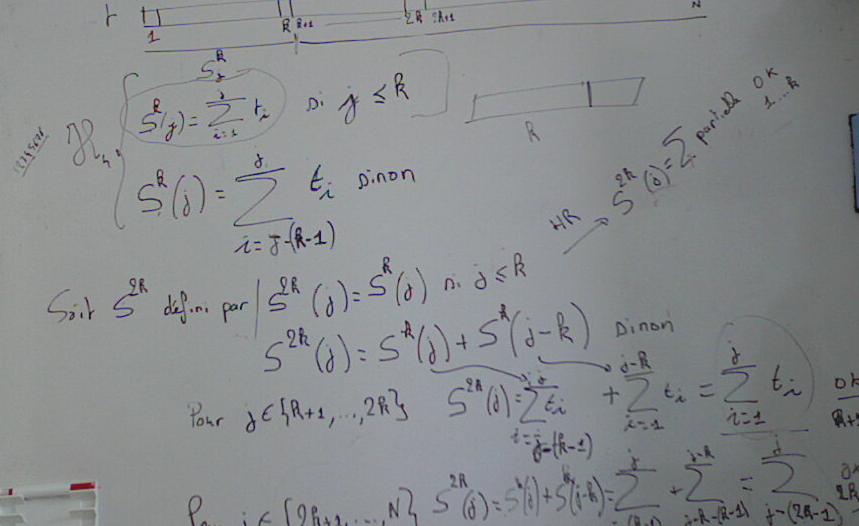 t
1 k k+1 2k 2k+1 N
S^k_j
H_k,
S^k(j) = ∑_{i=1}^{j} t_i si j ≤ k
k
S^k(j) = ∑_{i=j-(k-1)}^{j} t_i sinon
HR → S^{2k}(j) = ∑ partielle OK 1...k
Soit S^{2k} défini par | S^{2k}(j) = S^k(j) si j ≤ k
S^{2k}(j) = S^k(j) + S^k(j-k) sinon
Pour j ∈ {k+1, ..., 2k} S^{2k}(j) = ∑_{i=j-(k-1)}^{j} t_i + ∑_{i=1}^{j-k} t_i = ∑_{i=1}^{j} t_i OK k+1
j ∈ {2k+1, ..., N} S^{2k}(j) = S^k(j) + S^k(j-k) = ∑_{-(k-1)}^{j} + ∑_{j-k-(k-1)}^{j-k} = ∑_{j-(2k-1)}^{j} 2k